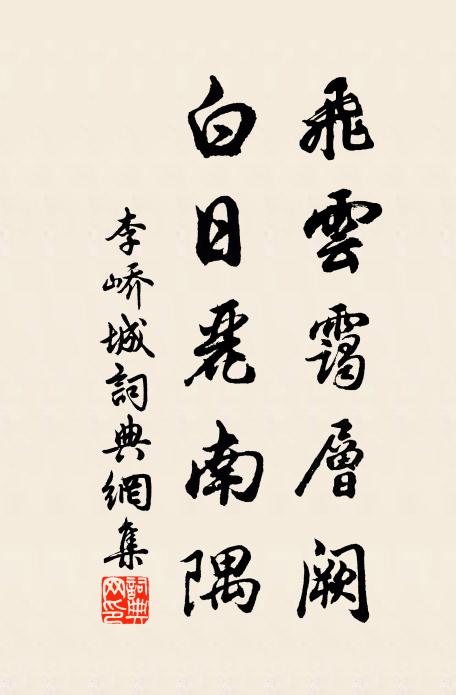 飛雲靄層闕
白日麗南隅
李嶠城詞典網集
詞典網印